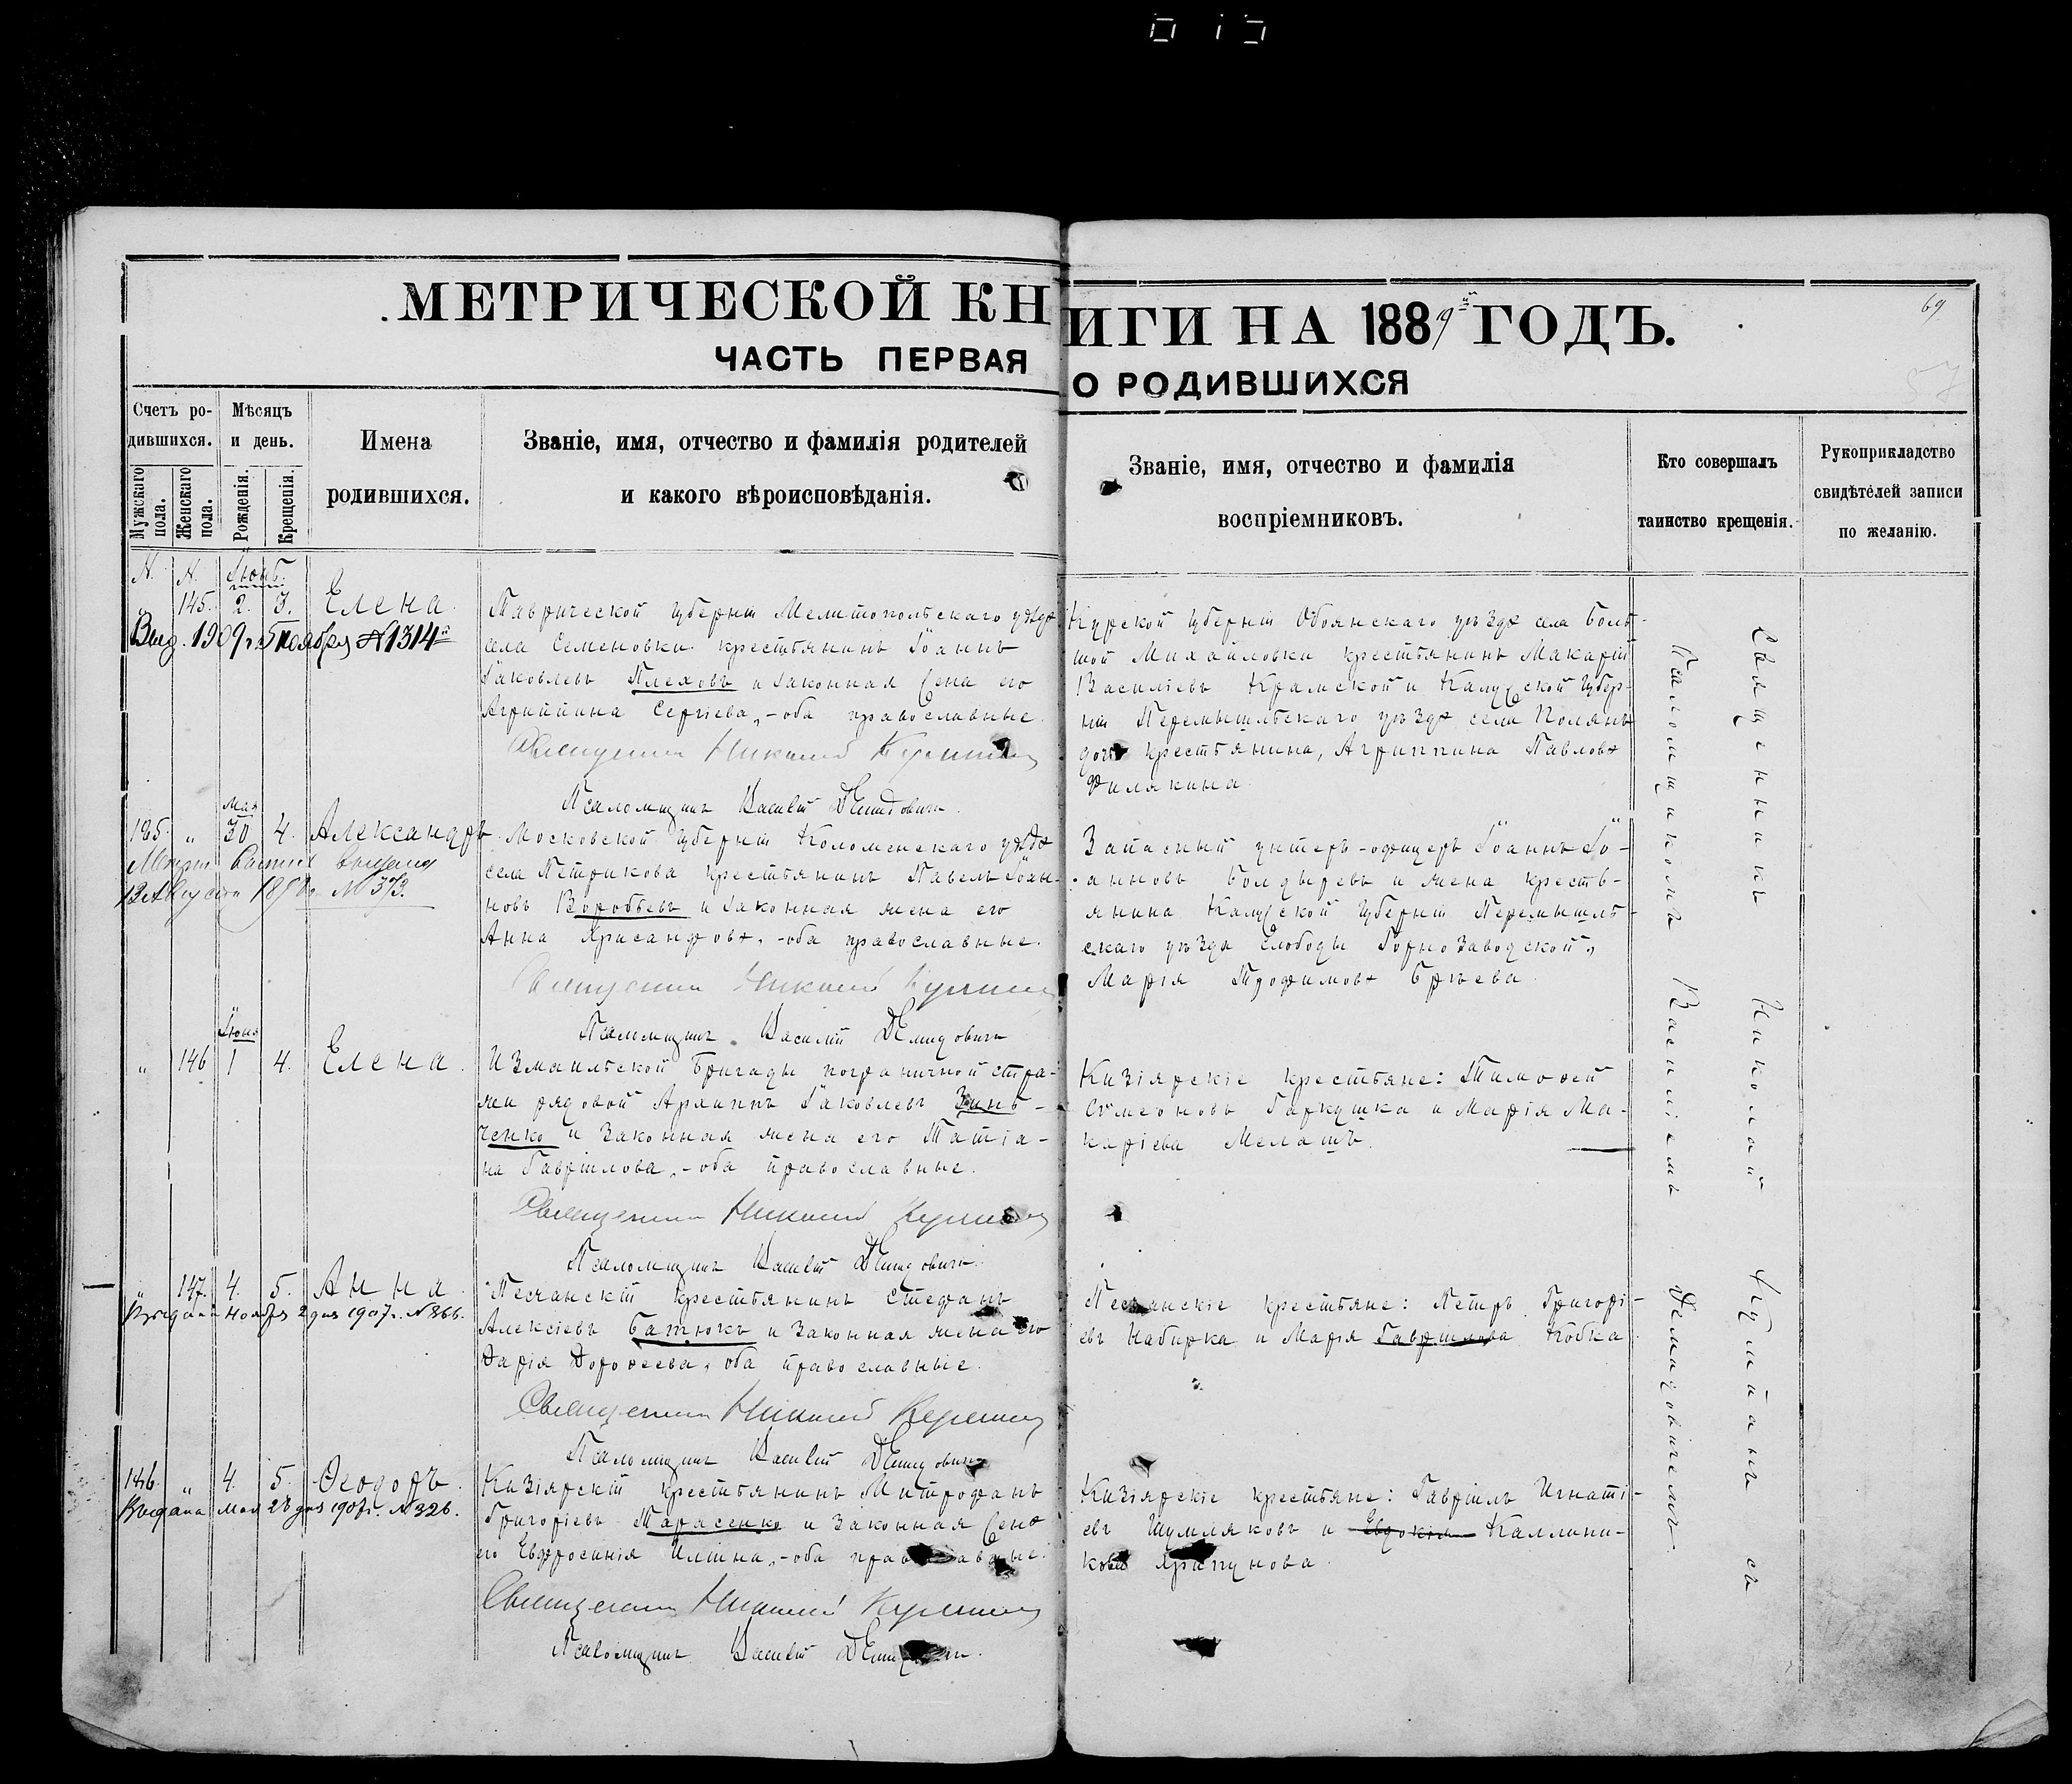 МЕТРИЧЕСКОЙ КНИГИ НА 1889й ГОДЪ.
69
ЧАСТЬ ПЕРВАЯ О РОДИВШИХСЯ
57
Счетъ родившихся.
Мужскаго пола.
Женскаго пола.
Мѣсяцъ и день.
Рожденія.
Крещенія.
Имена родившихся.
Званіе, имя, отчество и фамилія родителей
и какого вѣроисповѣданія.
Званіе, имя, отчество и фамилія
воспріемниковъ.
Кто совершалъ
таинство крещенія.
Рукоприкладство
свидѣтелей записи
по желанію.
N. N. Іюнь.
" 145. 2. 3. Елена.
Выд. 1909 г. 5 ноября № 1314й
Таврической губерніи Мелитопольскаго уѣзда
села Семеновки крестьянинъ Іоаннъ
Іаковлевъ Плеховъ и законная жена его
Агриппина Сергіева, - оба православные.
Священникъ Николай
Псаломщикъ Василій Демидовичъ.
Курской губерніи Обоянскаго уѣзда села Боль-
шой Михайловки крестьянинъ Макарій
Василіевъ Крамской и Калужской губер-
ніи Перемышльскаго уѣзда села Полянъ
дочь крестьянина, Агриппина Павлова
Филякина.
Мая
125. " 30 4. Александръ.
12 Августа № 373.
Московской губерніи Коломенскаго уѣзда
села Петрикова крестьянинъ Павелъ Іоан-
новъ Воробьевъ и законная жена его
Анна Хрисанфова, - оба православные.
Священникъ Николай
Псаломщикъ Василій Демидовичъ
Запасный унтеръ-офицеръ Іоаннъ Іо-
анновъ Болдыревъ и жена кресть-
янина Калужской губерніи Перемышль-
скаго уѣзда Слободы Горнозаводской,
Марія Трофимова
Іюня
" 146 1 4. Елена.
Измаильской бригады пограничной стра-
жи рядовой Архиппъ Іаковлевъ Зинь-
ченко и законная жена его Татіа-
на Гавріилова, - оба православные.
Священникъ Николай
Псаломщикъ Василій Демидовичъ.
Кизіярскіе крестьяне: Тимофей
Сѵмеоновъ Гаркушка и Марія Ма-
каріева Мелашъ.
" 147. 4. 5. Анна.
Выдана Ноября 2 дня 1907 г. № 866.
Песчанскій крестьянинъ Стефанъ
Алексіевъ Батюкъ и законная жена его
Дарія Дорофеева, оба православные.
Священникъ Николай
Псаломщикъ Василій Демидовичъ
Песчанскіе крестьяне: Петръ Григорі-
евъ Набирка и Марія Гавріилова Кобка
126. " 4. 5. Ѳеодоръ.
Выдана мая 28 дня 1907 г. № 326.
Кизіярскій крестьянинъ Митрофанъ
Григоріевъ Тарасенко и законная жена
его Евфросинія Иліина, - оба православные.
Священникъ Николай
Псаломщикъ Василій Демидовичъ.
Кизіярскіе крестьяне: Гавріилъ Игнаті-
евъ Шумляковъ и Евдокія Каллини-
кова Хрипунова.
Священникъ Николай съ
Псаломщикомъ Василіемъ Демидовичемъ.